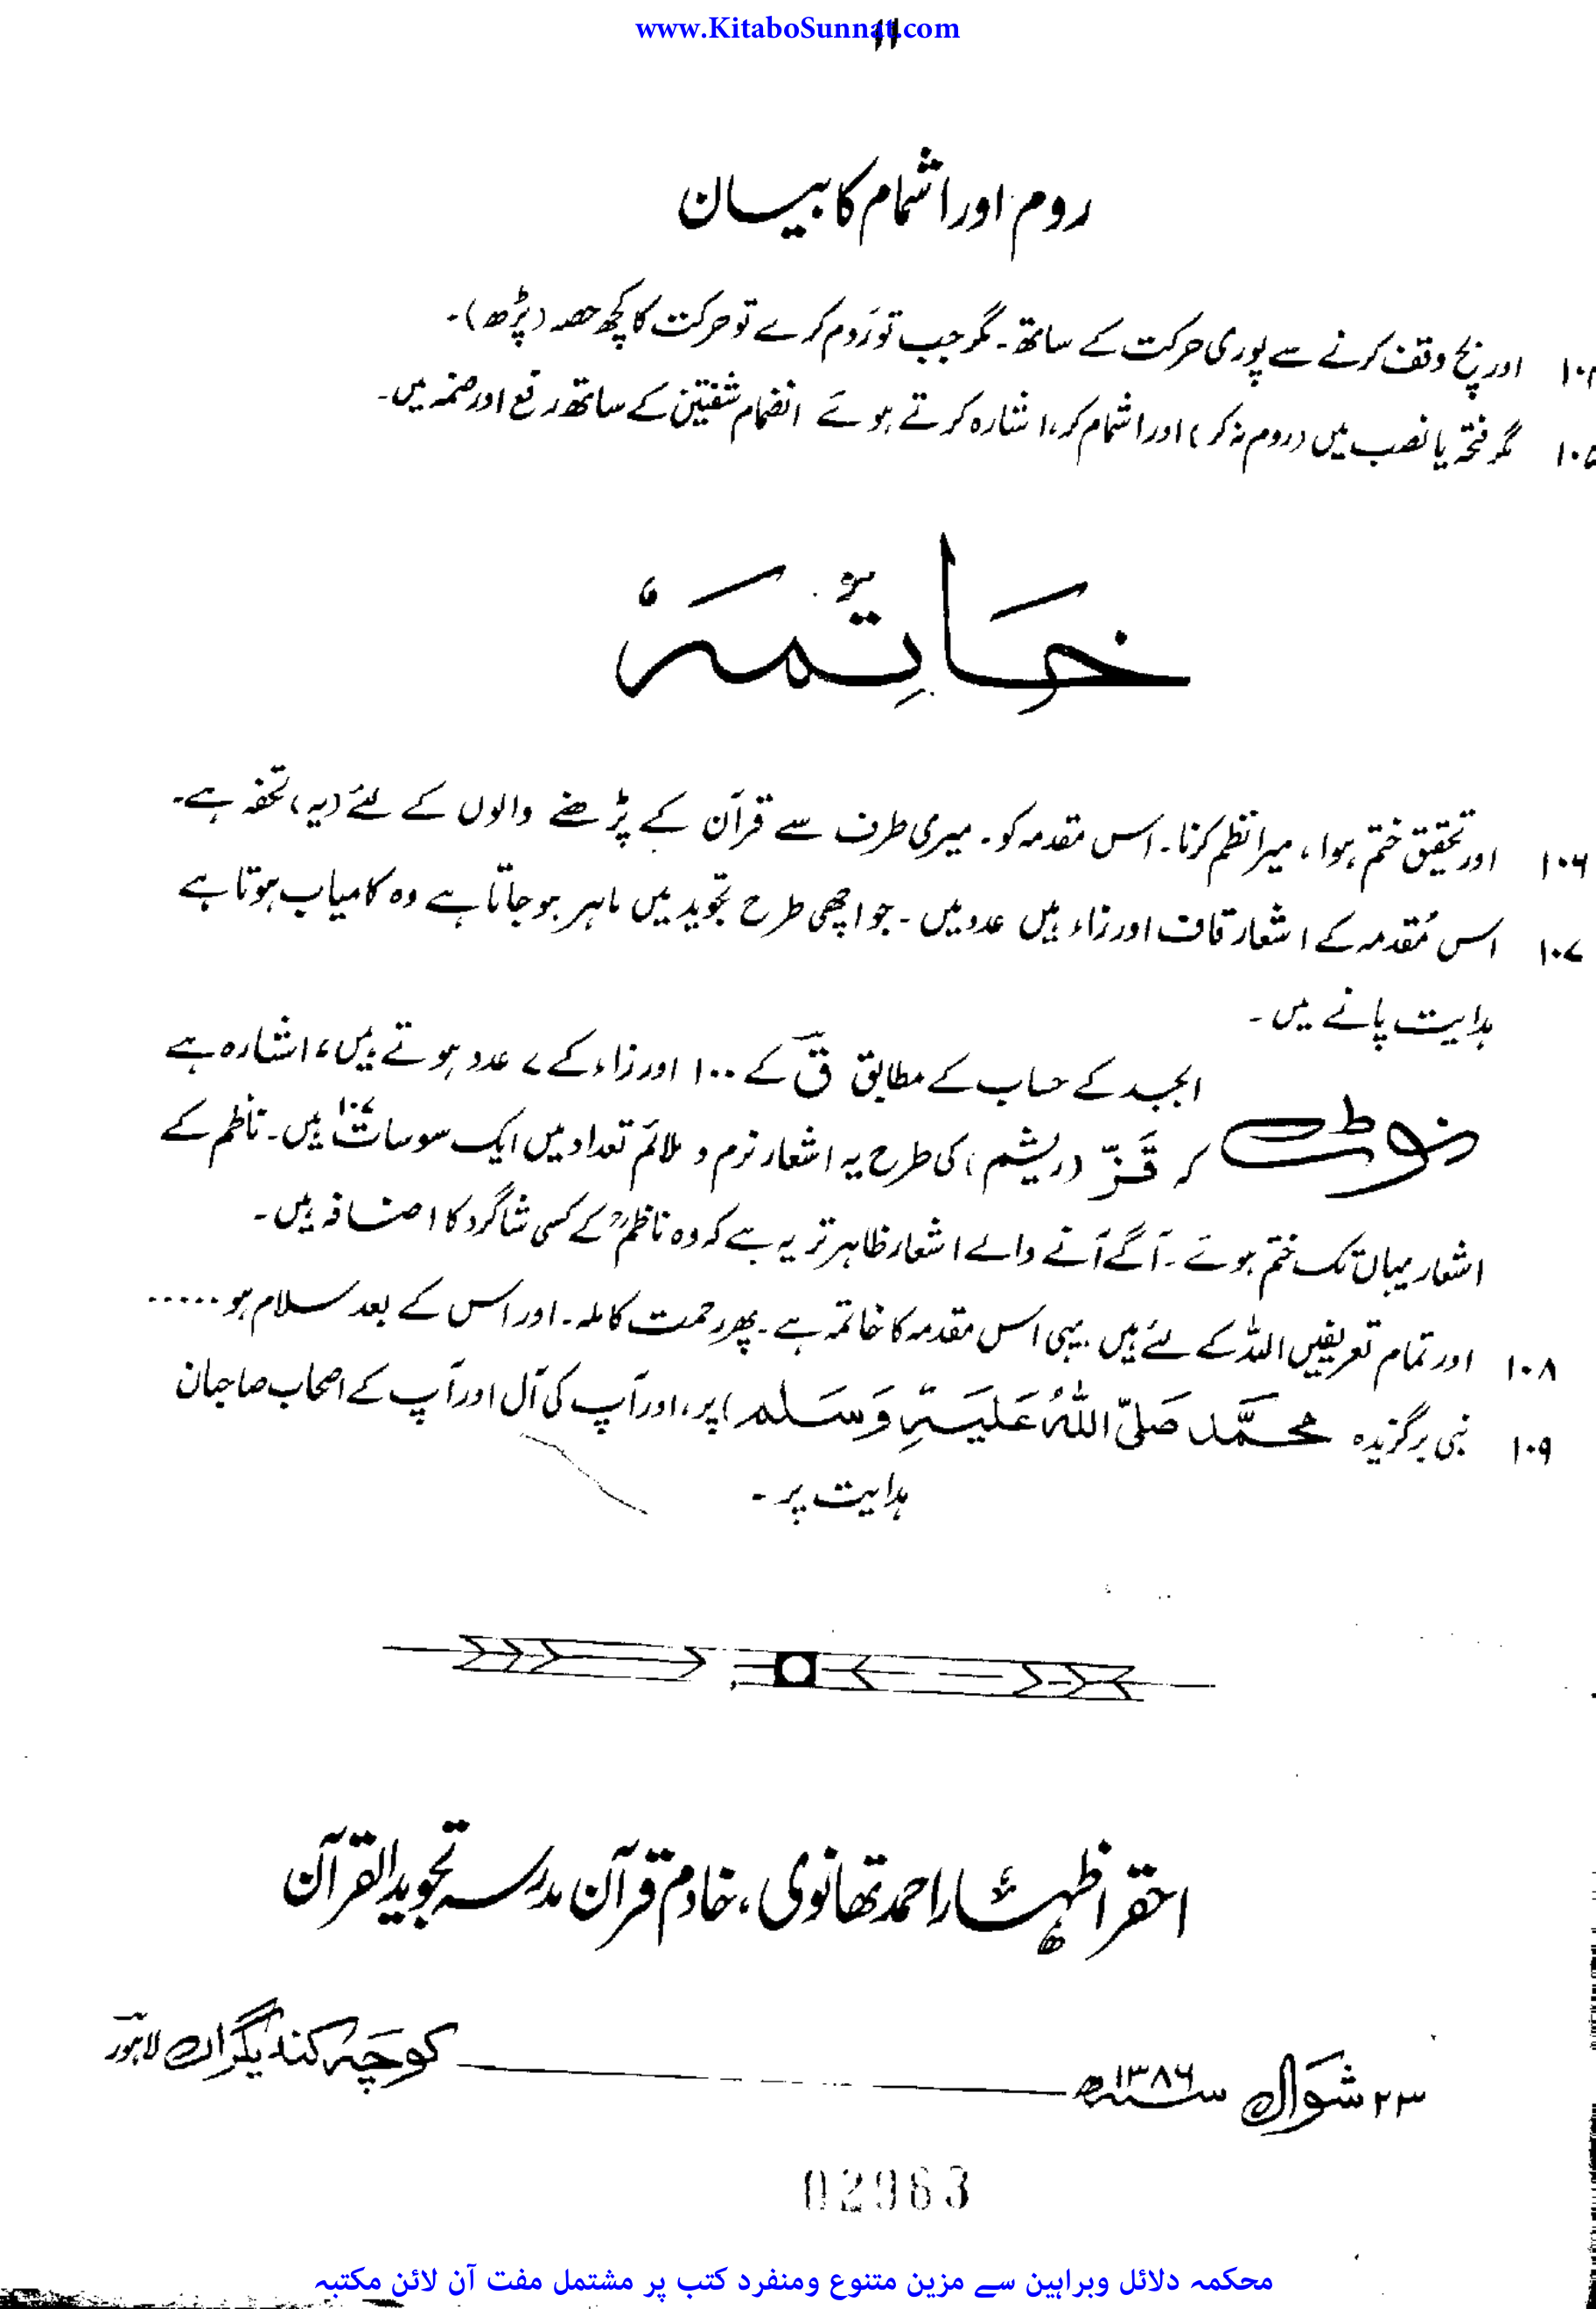 www.KitaboSunnat.com
۱۱
روم اور اشمام کا بیان
۱۰۴ اور بچ وقف کرنے سے پوری حرکت کے ساتھ۔ مگر جب تو رَوم کرے تو حرکت کا کچھ حصہ (پڑھ)۔
۱۰۵ مگر فتحہ یا نصب میں (روم نہ کر) اور اشمام کر، اشارہ کرتے ہوئے انضمام شفتین کے ساتھ رفع اور ضمہ میں۔
خَاتِمَہ
۱۰۶ اور تحقیق ختم ہوا، میرا نظم کرنا۔ اس مقدمہ کو۔ میری طرف سے قرآن کے پڑھنے والوں کے لئے (یہ) تحفہ ہے۔
۱۰۷ اس مُقدمہ کے اشعار قاف اور زاء ہیں عدد میں۔ جو اچھی طرح تجوید میں ماہر ہو جاتا ہے وہ کامیاب ہوتا ہے
ہدایت پانے میں۔
نوٹ ابجد کے حساب کے مطابق قؔ کے ۱۰۰ اور زاء کے ۷ عدد ہوتے ہیں، اشارہ ہے
کہ قَزّ (ریشم) کی طرح یہ اشعار نرم و ملائم تعداد میں ایک سو سات ۱۰۷ ہیں۔ ناظم کے
اشعار یہاں تک ختم ہوئے۔ آگے آنے والے اشعار ظاہر تر یہ ہے کہ وہ ناظمؒ کے کسی شاگرد کا اضافہ ہیں۔
۱۰۸ اور تمام تعریفیں اللہ کے لئے ہیں یہی اس مقدمہ کا خاتمہ ہے۔ پھر رحمت کاملہ۔ اور اس کے بعد سلام ہو .....
۱۰۹ نبی برگزیدہ محمَّد صَلَّی اللہُ عَلَیہِ وَسَلم) پر، اور آپ کی آل اور آپ کے اصحاب صاحبان
ہدایت پر۔
احقر اظہار احمد تھانوی، خادم قرآن مدرسہ تجوید القرآن
۲۳ شوال سنہ ۱۳۸۶ھ کوچہ کندیگراں لاہور
02963
محکمہ دلائل وبراہین سے مزین متنوع ومنفرد کتب پر مشتمل مفت آن لائن مکتبہ